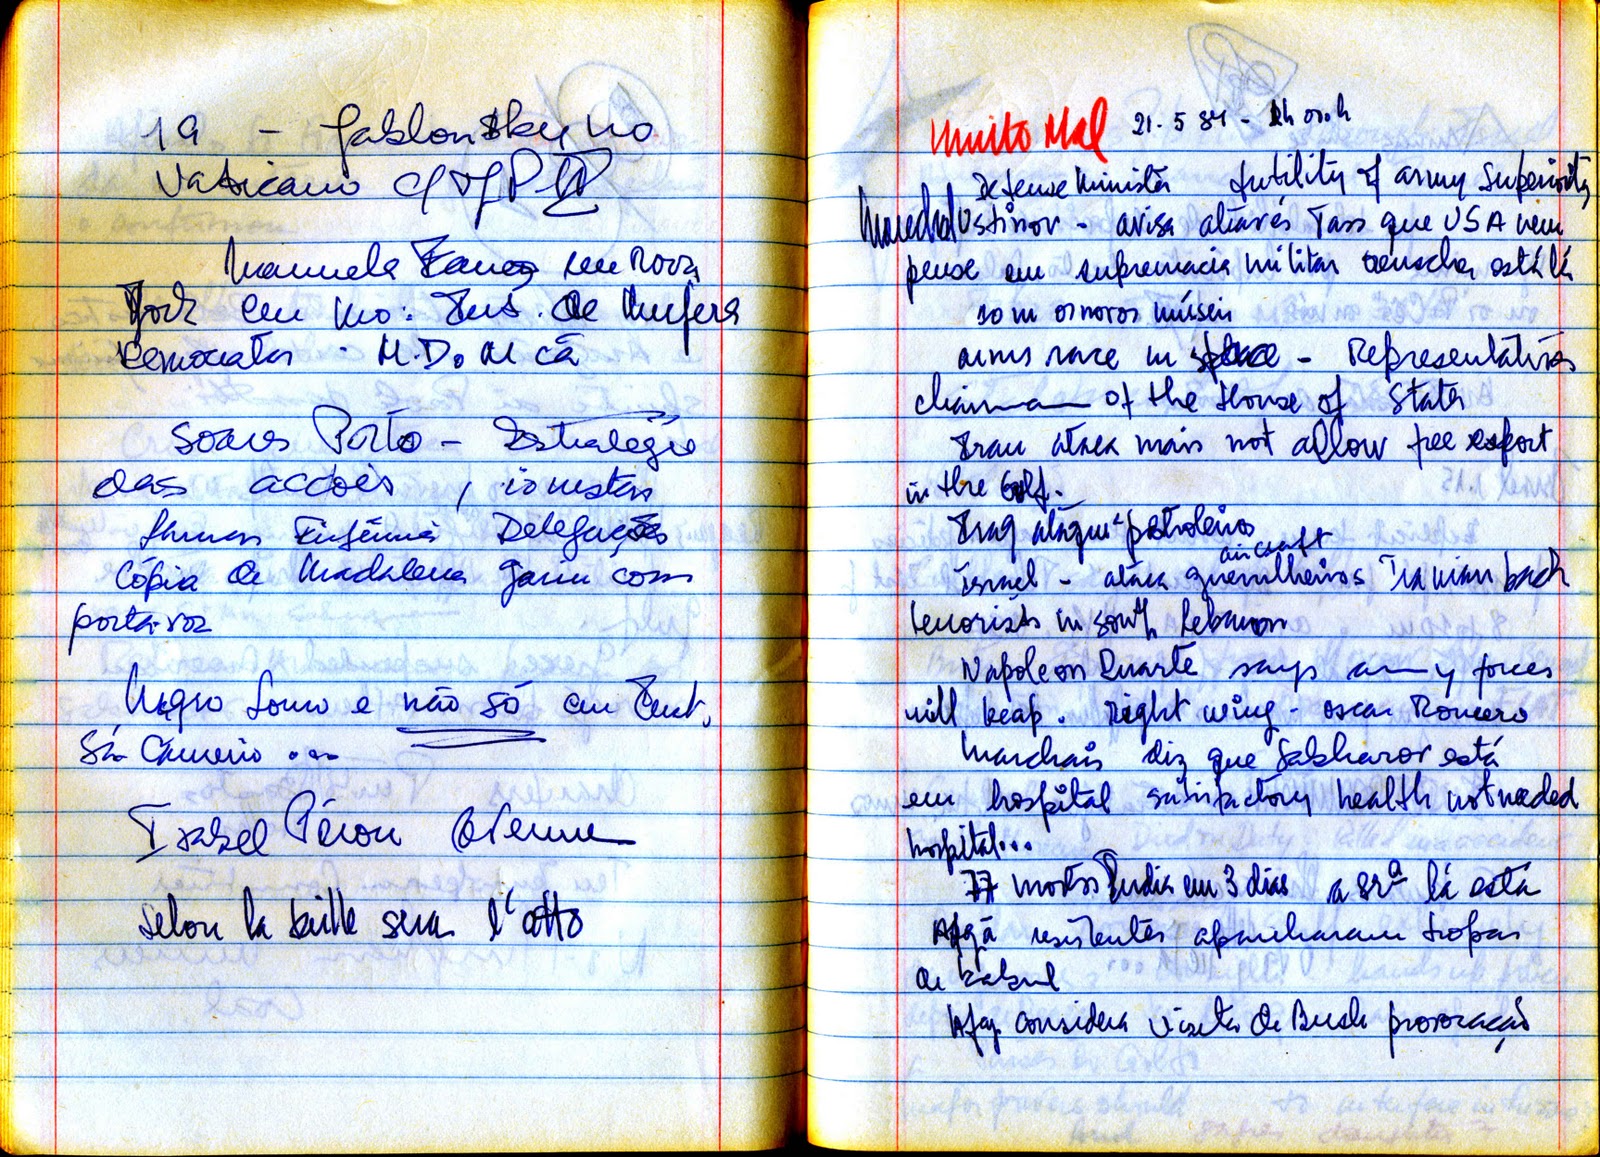 19 - Jablonsky no
Vaticano
Manuela Eanes em Nova
York em
Democrata . M.D. M cá
Soares Porto - Estratégia
das acções,
Eugénia Delegações
Cópia de Madalena com
porta voz
Negro Lomo e não só em
Sá Carneiro ...
Isabel Péron
Selon la taille sera l'
Muito Mal 21.5 84 -
Defense Minister futility of army superiority
Marechal Ustinov - avisa através Tass que USA nem
pense em supremacia militar está lá
com os novos mísseis
arms race in space - Representatives
chairman of the House of States
Iran ataca mais not allow free export
in the Golf.
Iraq ataque petroleiros
aircraft
Israel - ataca guerrilheiros Iranian back
terrorists in south Lebanon
Napoleon Duarte says army forces
will keap. Right wing - oscar Romero
Marchais diz que Sakharov está
em hospital satisfactory health not needed
hospital...
77 mortos India em 3 dias a srª lá está
Afgã resistentes apanharam tropas
de Kabul
Afg. considera visita de Bush provocação